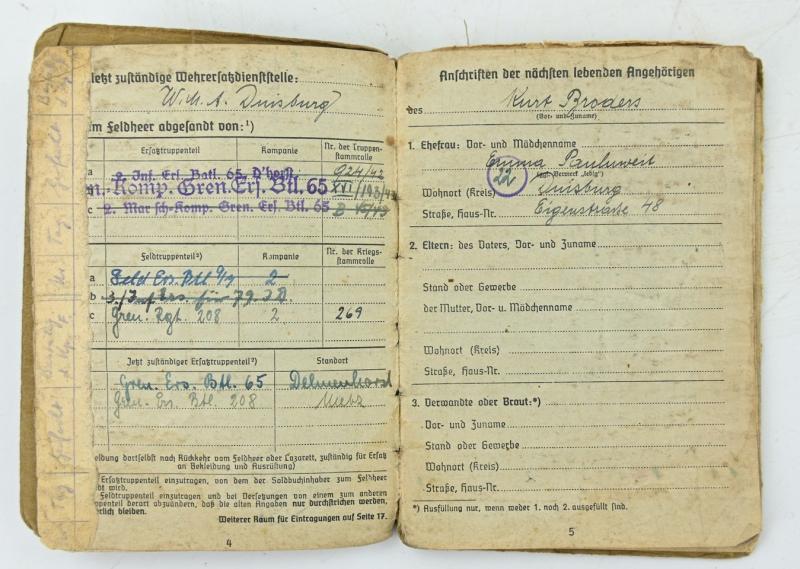 Jetzt zuständige Wehrersatzdienststelle:
W.M.A. Duisburg
im Feldheer abgesandt von:¹)
Ersatztruppenteil Kompanie Nr. der Truppenstammrolle
a 2. Inf. Ers. Batl. 65, D'horst 924/42
Komp. Gren. Ers. Btl. 65 XVI/193/43
c 2. Marsch-Komp. Gren. Ers. Btl. 65
Feldtruppenteil²) Kompanie Nr. der Kriegsstammrolle
a Feld Ers. Btl. 2
b 79. I.D.
c Gren. Rgt. 208 2 269
Jetzt zuständiger Ersatztruppenteil²) Standort
Gren. Ers. Btl. 65 Delmenhorst
Gren. Ers. Btl. 208 Metz
eldung dortselbst nach Rückkehr vom Feldheer oder Lazarett, zuständig für Ersatz
an Bekleidung und Ausrüstung)
Ersatztruppenteil einzutragen, von dem der Soldbuchinhaber zum Feldheer
dt wird.
Feldtruppenteil einzutragen und bei Versetzungen von einem zum anderen
ppenteil derart abzuändern, daß die alten Angaben nur durchstrichen werden,
erlich bleiben.
Weiterer Raum für Eintragungen auf Seite 17.
4
Anschriften der nächsten lebenden Angehörigen
des Kurt Broders
(Vor- und Zuname)
1. Ehefrau: Vor- und Mädchenname
Emma Pauluweit
22
Wohnort (Kreis) Duisburg
Straße, Haus-Nr. Eigenstraße 48
2. Eltern: des Vaters, Vor- und Zuname
Stand oder Gewerbe
der Mutter, Vor- u. Mädchenname
Wohnort (Kreis)
Straße, Haus-Nr.
3. Verwandte oder Braut:*)
Vor- und Zuname
Stand oder Gewerbe
Wohnort (Kreis)
Straße, Haus-Nr.
*) Ausfüllung nur, wenn weder 1. noch 2. ausgefüllt sind.
5